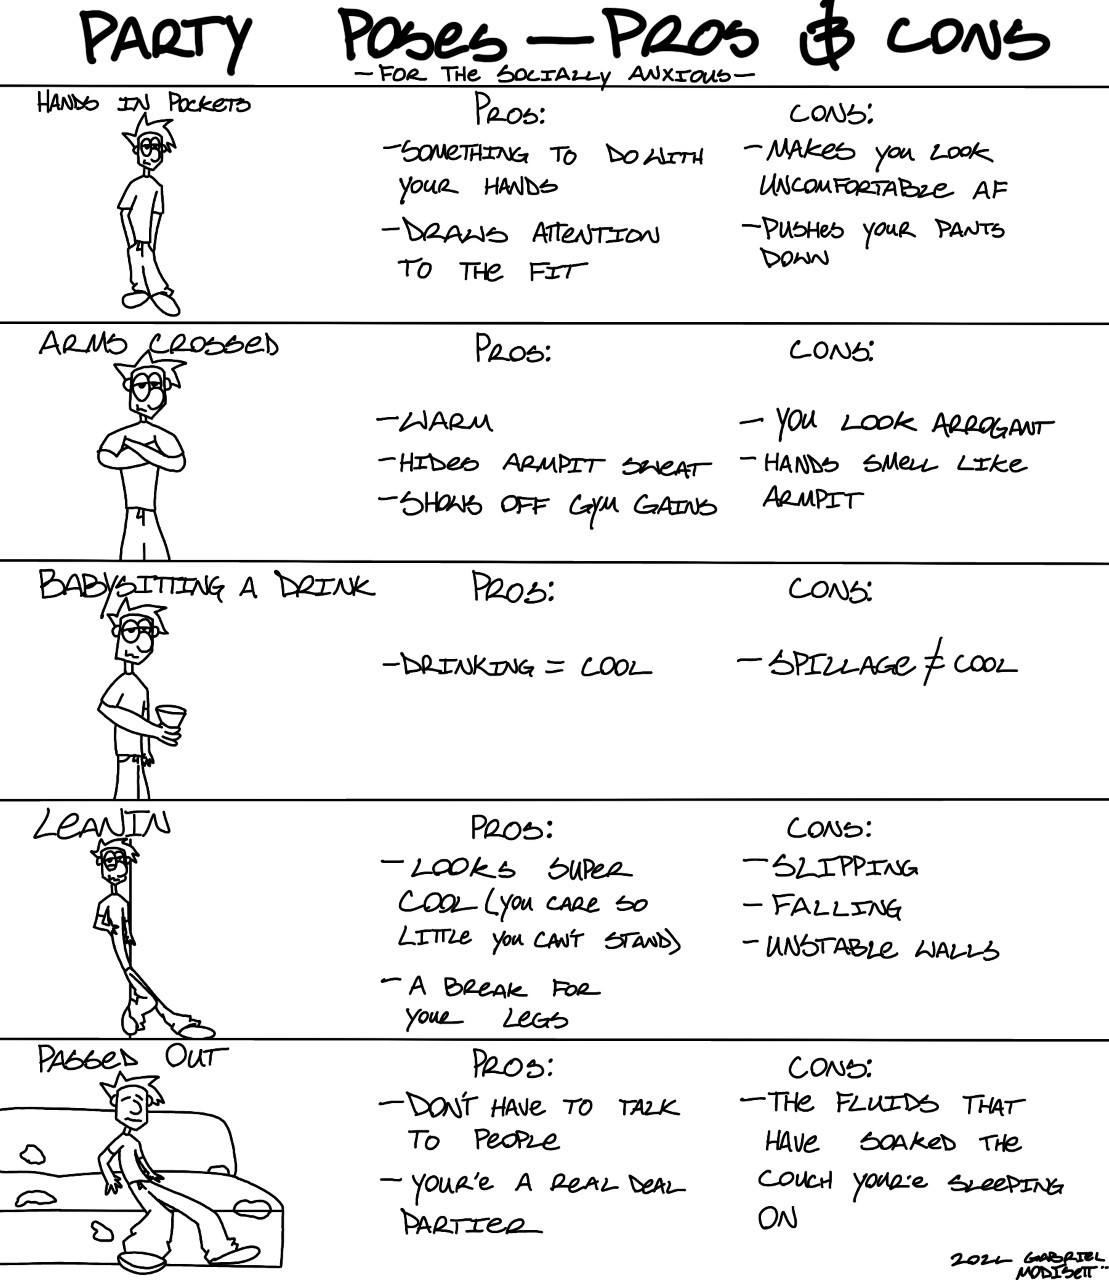 PARTY POSES — PROS & CONS
— FOR THE SOCIALLY ANXIOUS —
HANDS IN POCKETS
PROS:
— SOMETHING TO DO WITH
YOUR HANDS
— DRAWS ATTENTION
TO THE FIT
CONS:
— MAKES YOU LOOK
UNCOMFORTABLE AF
— PUSHES YOUR PANTS
DOWN
ARMS CROSSED
PROS:
— WARM
— HIDES ARMPIT SWEAT
— SHOWS OFF GYM GAINS
CONS:
— YOU LOOK ARROGANT
— HANDS SMELL LIKE
ARMPIT
BABYSITTING A DRINK
PROS:
— DRINKING = COOL
CONS:
— SPILLAGE ≠ COOL
LEANIN
PROS:
— LOOKS SUPER
COOL (YOU CARE SO
LITTLE YOU CAN'T STAND)
— A BREAK FOR
YOUR LEGS
CONS:
— SLIPPING
— FALLING
— UNSTABLE WALLS
PASSED OUT
PROS:
— DON'T HAVE TO TALK
TO PEOPLE
— YOUR'E A REAL DEAL
PARTIER
CONS:
— THE FLUIDS THAT
HAVE SOAKED THE
COUCH YOUR'E SLEEPING
ON
GABRIEL
MODISETT